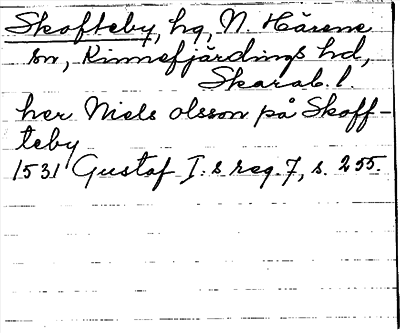 Skofteby, hg, N. Härene
sn, Kinnefjärdings hd,
Skarab. l.
her Niels olsson på Skoff-
teby
1531 Gustaf I:s reg. 7, s. 255.